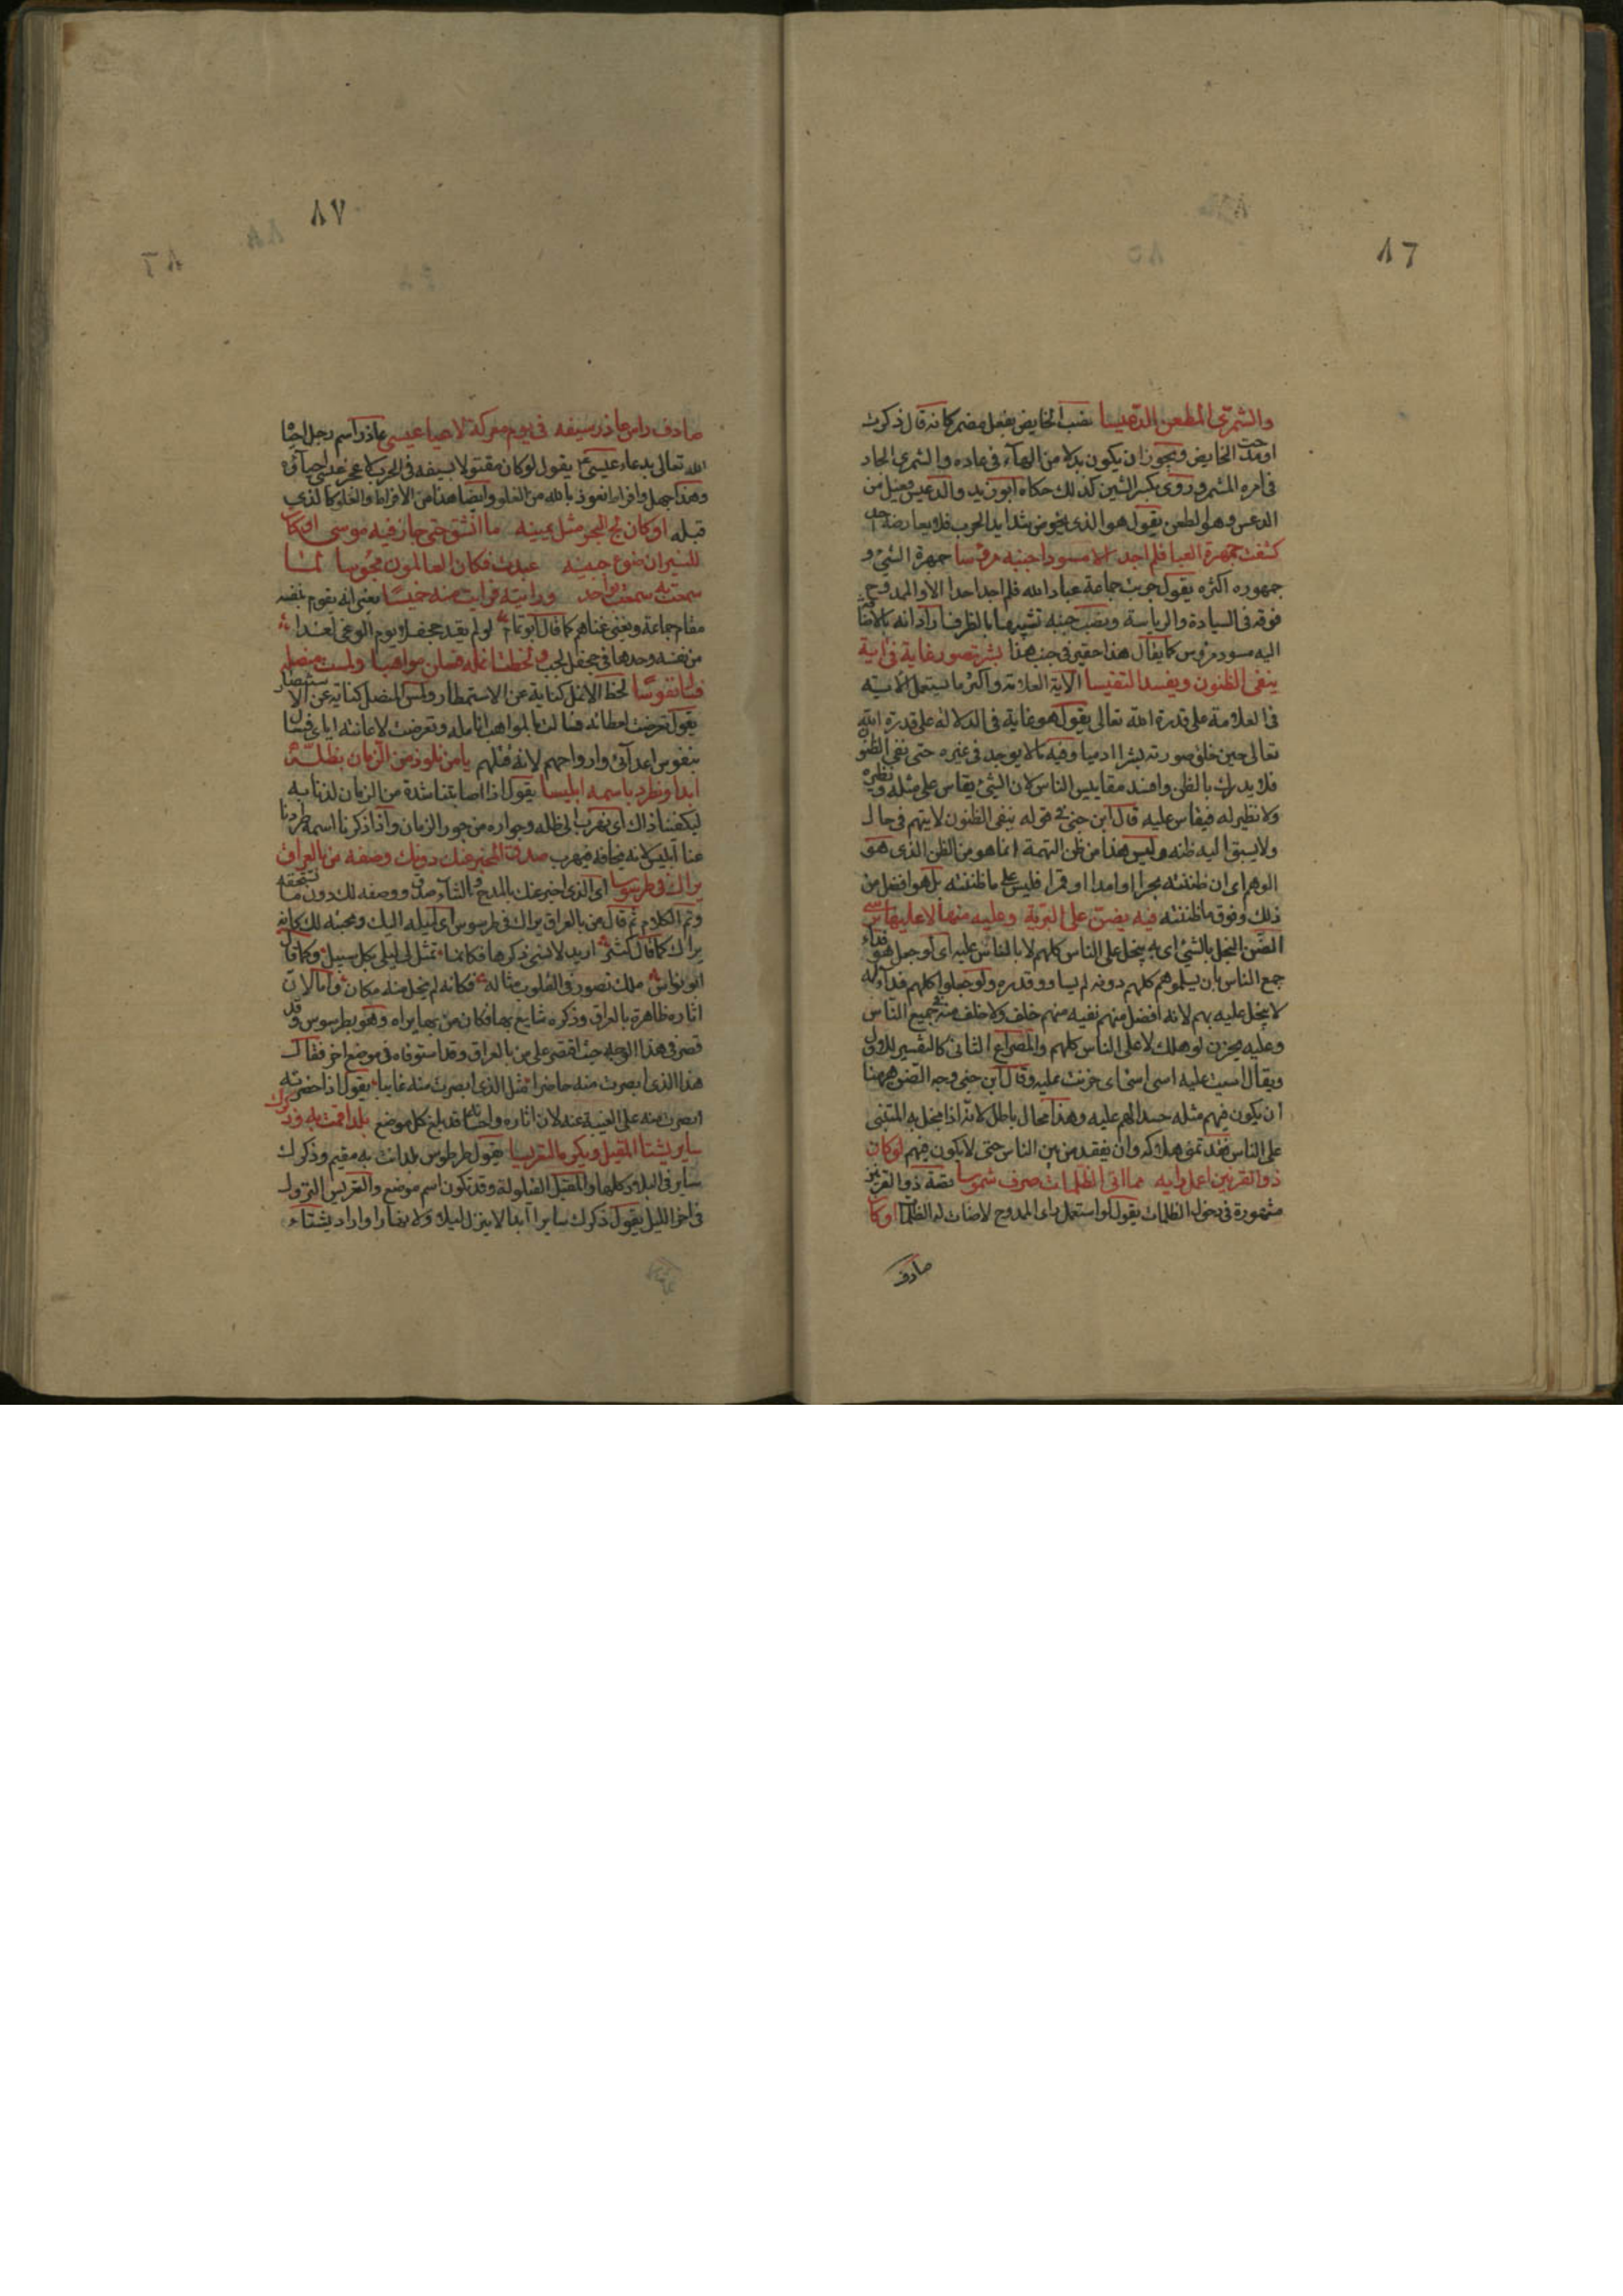 ٨٦
والشمرى المطعن الدعيسا نصب الخايض بفعل مضمر كانه قال ذكرت
او مدحت الخايض ويجوز ان يكون بدلا من الهآء فى عاده والشمرى الجاد
فى امره المشمر وروى بكسر الشين كذلك حكاه ابو زيد والدعيس فعيل من
الدعس وهو الطعن يقول هو الذى يخوض شدايد الحرب فلا يعارضه احد
كشفت جمهرة العباد فلم اجد الا مسودا جنبه مرؤسا جمهرة الشئ و
جمهوره اكثره يقول جربت جماعة عباد الله فلم اجد احدا الا والممدوح
فوقه فى السيادة والرياسة ونصب جنبه تشبيها بالظرف اراد انه بالاضافة
اليه مسود مرؤس كما يقال هذا حقير فى جنب هذا بشر تصور غاية فى اية
ينفى الظنون ويفسد التقييسا الاية العلامة واكثر ما تستعمل الاية
فى العلامة على قدرة الله تعالى يقول هو غاية فى الدلالة على قدرة الله
تعالى حين خلق صورته بشرا ادميا وفيه ما لا يوجد فى غيره حتى نفى الظنون
فلا يدرك بالظن وافسد مقاييس الناس لان الشئ يقاس على مثله ونظيره
ولا نظير له فيقاس عليه قال ابن جنى فى قوله ينفى الظنون لا يتهم فى حال
ولا يسبق اليه ظنه وليس هذا من ظن التهمة انما هو من الظن الذى هو
الوهم اى ان ظننته بحرا او اسدا او قمرا فليس على ما ظننته بل هو افضل من
ذلك وفوق ما ظننته فبه يضن على البرية وعليه منها لا عليها يوسى
الضن البخل بالشئ اى به يبخل على الناس كلهم لا بالناس عليه اى لو جعل هو فداء
جمع الناس بان يسلموهم كلهم دونه لم يساووا قدره ولو جعلوا كلهم فداء له
لا يبخل عليه بهم لانه افضل منهم نفيه منهم خلف ولا خلف منه فى جميع الناس
وعليه يحزن لو هلك لا على الناس كلهم والمصراع الثانى كالتفسير للاول
ويقال اسيت عليه اسى اى حزنت عليه وقال ابن جنى وجه الضن ههنا
ان يكون فيهم مثله حسدا لهم عليه وهذا محال باطل لانه اذا بخل به المتنبى
على الناس فقد تمنى هلاكه وان يفقد من بين الناس حتى لا يكون فيهم لو كان
ذو القرنين اعمل رايه مما اتى الظلمات صرف شموسا قصة ذو القرنين
مشهورة فى دخول الظلمات يقول لو استعمل راى الممدوح لاضات له الظلمات او كان
صادف
٨٧
صادف راس عاذر سيفه فى يوم معركة لاعيا عيسى عاذر اسم رجل احياه
الله تعالى بدعاء عيسى يقول لو كان مقتولا بسيفه فى الحرب لاعجز عيسى احياؤه
وهذا جهل وافراط نعوذ بالله من الغلو وايضا هذا من الافراط والغلو كالذى
قبله او كان لج البحر مثل يمينه ما انشق حتى جاز فيه موسى او كان
للنيران ضوء جبينه عبدت فكان العالمون مجوسا لما
سمعت به سمعت بواحد ورايته فرايت منه خميسا يعنى انه يقوم بنفسه
مقام جماعة ويغنى غناهم كما قال ابو تمام لو لم يقد جحفلا يوم الوغى لغدا
من نفسه وحدها فى جحفل لجب ولحظت انمله فسلن مواهبا ولمست منصله
فسال نفوسا لحظ الانمل كناية عن الاستمطار ولمس المنصل كناية عن الاستنصار
يقول تعرضت لعطائه فسالت بالمواهب انامله وتعرضت لاعانته اياى فسال
بنفوس اعدآئى وارواحهم لانه قتلهم يا من نلوذ من الزمان بظله
ابدا ونطرد باسمه ابليسا يقول اذا اصابتنا شدة من الزمان لذنا به
ليكفينا ذاك اى نهرب الى ظله وجواره من جور الزمان واذا ذكرنا اسمه طردنا
عنا ابليس لانه يخافه فيهرب صدق المخبر عنك دونك وصفه من بالعراق
يراك فى طرسوسا اى الذى اخبر عنك بالمدح والثناء صدق ووصفه لك دون ما تستحقه
وتم الكلام ثم قال من بالعراق يراك فى طرسوس اى لميله اليك ومحبته لك كانه
يراك كما قال كثير اريد لانسى ذكرها فكانما تمثل لى ليلى بكل سبيل وكما قال
ابو نواس ملك تصور فى القلوب مثاله فكانه لم يخل منه مكان واما لان
اثاره ظاهرة بالعراق وذكره شايع بها فكان من بها يراه وهو بطرسوس وقد
قصر فى هذا الوجه حيث اقتصر على من بالعراق وقد استوفاه فى موضع اخر فقال
هذا الذى ابصرت منه حاضرا مثل الذى ابصرت منه غايبا يقول اذا حضرته
ابصرت منه على الغيبة عنه لان اثاره واحسانه قد بلغ كل موضع بلد اقمت به وذكرك
ساير يشنا المقيل ويكره التعريسا يقول طرطوس بلد انت به مقيم وذكرك
ساير فى البلاد كلها والمقيل القيلولة وقد تكون اسم موضع والتعريس النزول
فى اخر الليل يقول ذكرك ساير ابدا لا ينزل ليلا ولا نهارا واراد يشناء